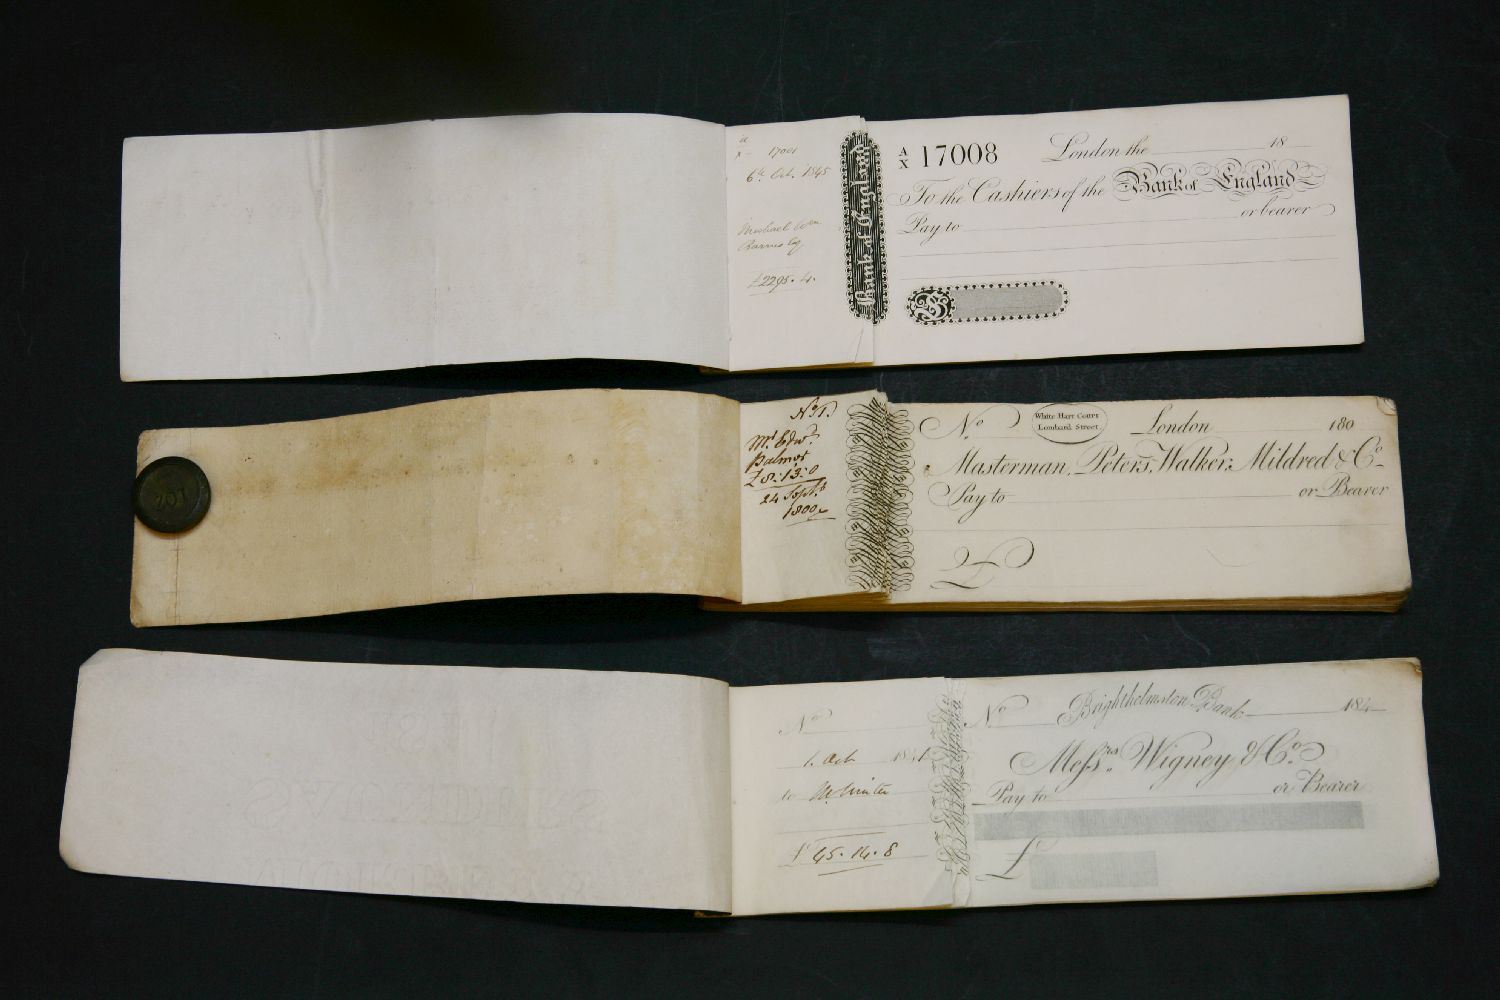 17001
6th Oct. 1845
Michael Wm
Barnes Esq
£2295. 4.
Bank of England
A/X 17008 London the 18
To the Cashiers of the Bank of England
Pay to or bearer
No. 1.
Mr. Edwd.
£8:13:0
24 Septr.
1800
No White Hart Court
Lombard Street. London 180
Masterman, Peters, Walker, Mildred & Co.
Pay to or Bearer
£
No
1. Oct 1841
to
£ 45. 14. 8
No Brightholmston Bank 184
Messrs. Wigney & Co.
Pay to or Bearer
£